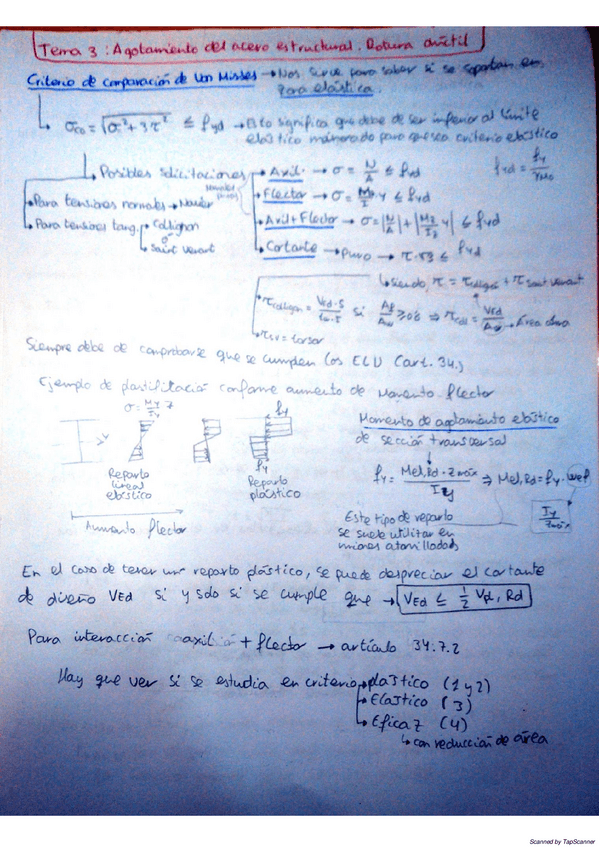 Tema 3: Agotamiento del acero estructural. Rotura dúctil
Criterio de comparación de Von Misses → Nos sirve para saber si se soportan en
zona elástica.
σco = √σ² + 3τ² ≤ fyd → Esto significa que debe de ser inferior al límite
elástico minorado para que sea criterio elástico
fyd = fy/γM0
Posibles solicitaciones
Axil → σ = N/A ≤ fyd
Para tensiones normales → Navier
Flector → σ = y ≤ fyd
Para tensiones tang.
Collignon
o
Saint Venant
Axil + Flector → σ = |N/A| + | y| ≤ fyd
Cortante → Puro → τ·√3 ≤ fyd
siendo, τ = τcollignon + τsaint venant
τcollignon = si ≥ 0'6 ⇒ = VEd/Aw → Área alma
τsv = torsor
Siempre debe de comprobarse que se cumplen los ELU (art. 34.)
Ejemplo de plastificación conforme aumento de momento flector
σ = z
fy
Momento de agotamiento elástico
de sección transversal
fy
Reparto
lineal
elástico
Reparto
plástico
fy = Mel,Rd · zmáx / Iy ⇒ Mel,Rd = fy · Wel
Iy/zmáx
Aumento flector
Este tipo de reparto
se suele utilizar en
uniones atornilladas
En el caso de tener un reparto plástico, se puede despreciar el cortante
de diseño VEd si y solo si se cumple que → VEd ≤ 1/2 Vpl,Rd
Para interacción axil + flector → artículo 34.7.2
Hay que ver si se estudia en criterio → plástico (1 y 2)
→ Elástico (3)
→ Eficaz (4)
↳ con reducción de área
Scanned by TapScanner